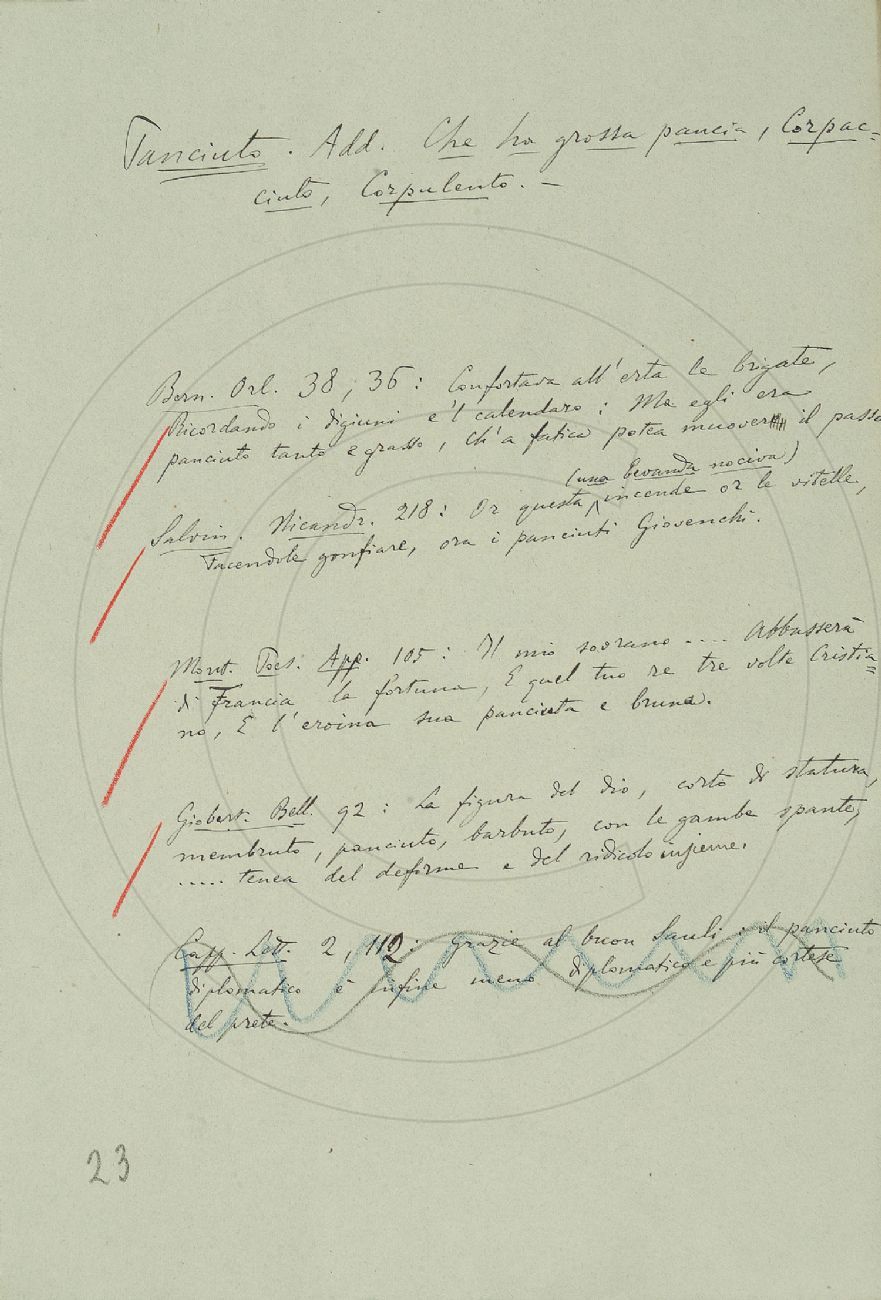 Panciuto. Add. Che ha grossa pancia, Corpac=
ciuto, Corpulento. –
Bern. Orl. 38, 36: Confortava all'erta le brigate,
Ricordando i digiuni e 'l calendaro; Ma egli era
panciuto tanto e grasso, Ch'a fatica potea muovere il passo
(una bevanda nociva)
Salvin. Nicandr. 218: Or questa incende or le vitelle,
Facendole gonfiare, ora i panciuti Giovenchi.
Mont. Poes. App. 105: Il mio sovrano .... Abbasserà
di Francia la fortuna, E quel tuo re tre volte Cristia=
no, E l'eroina sua panciuta e bruna.
Giobert. Bell. 92: La figura del dio, corto di statura,
membruto, panciuto, barbuto, con le gambe spante,
..... tenea del deforme e del ridicolo insieme.
Capp. Lett. 2, 112: Grazie al buon Sauli: il panciuto
diplomatico è infine meno diplomatico e più cortese
del prete.
23